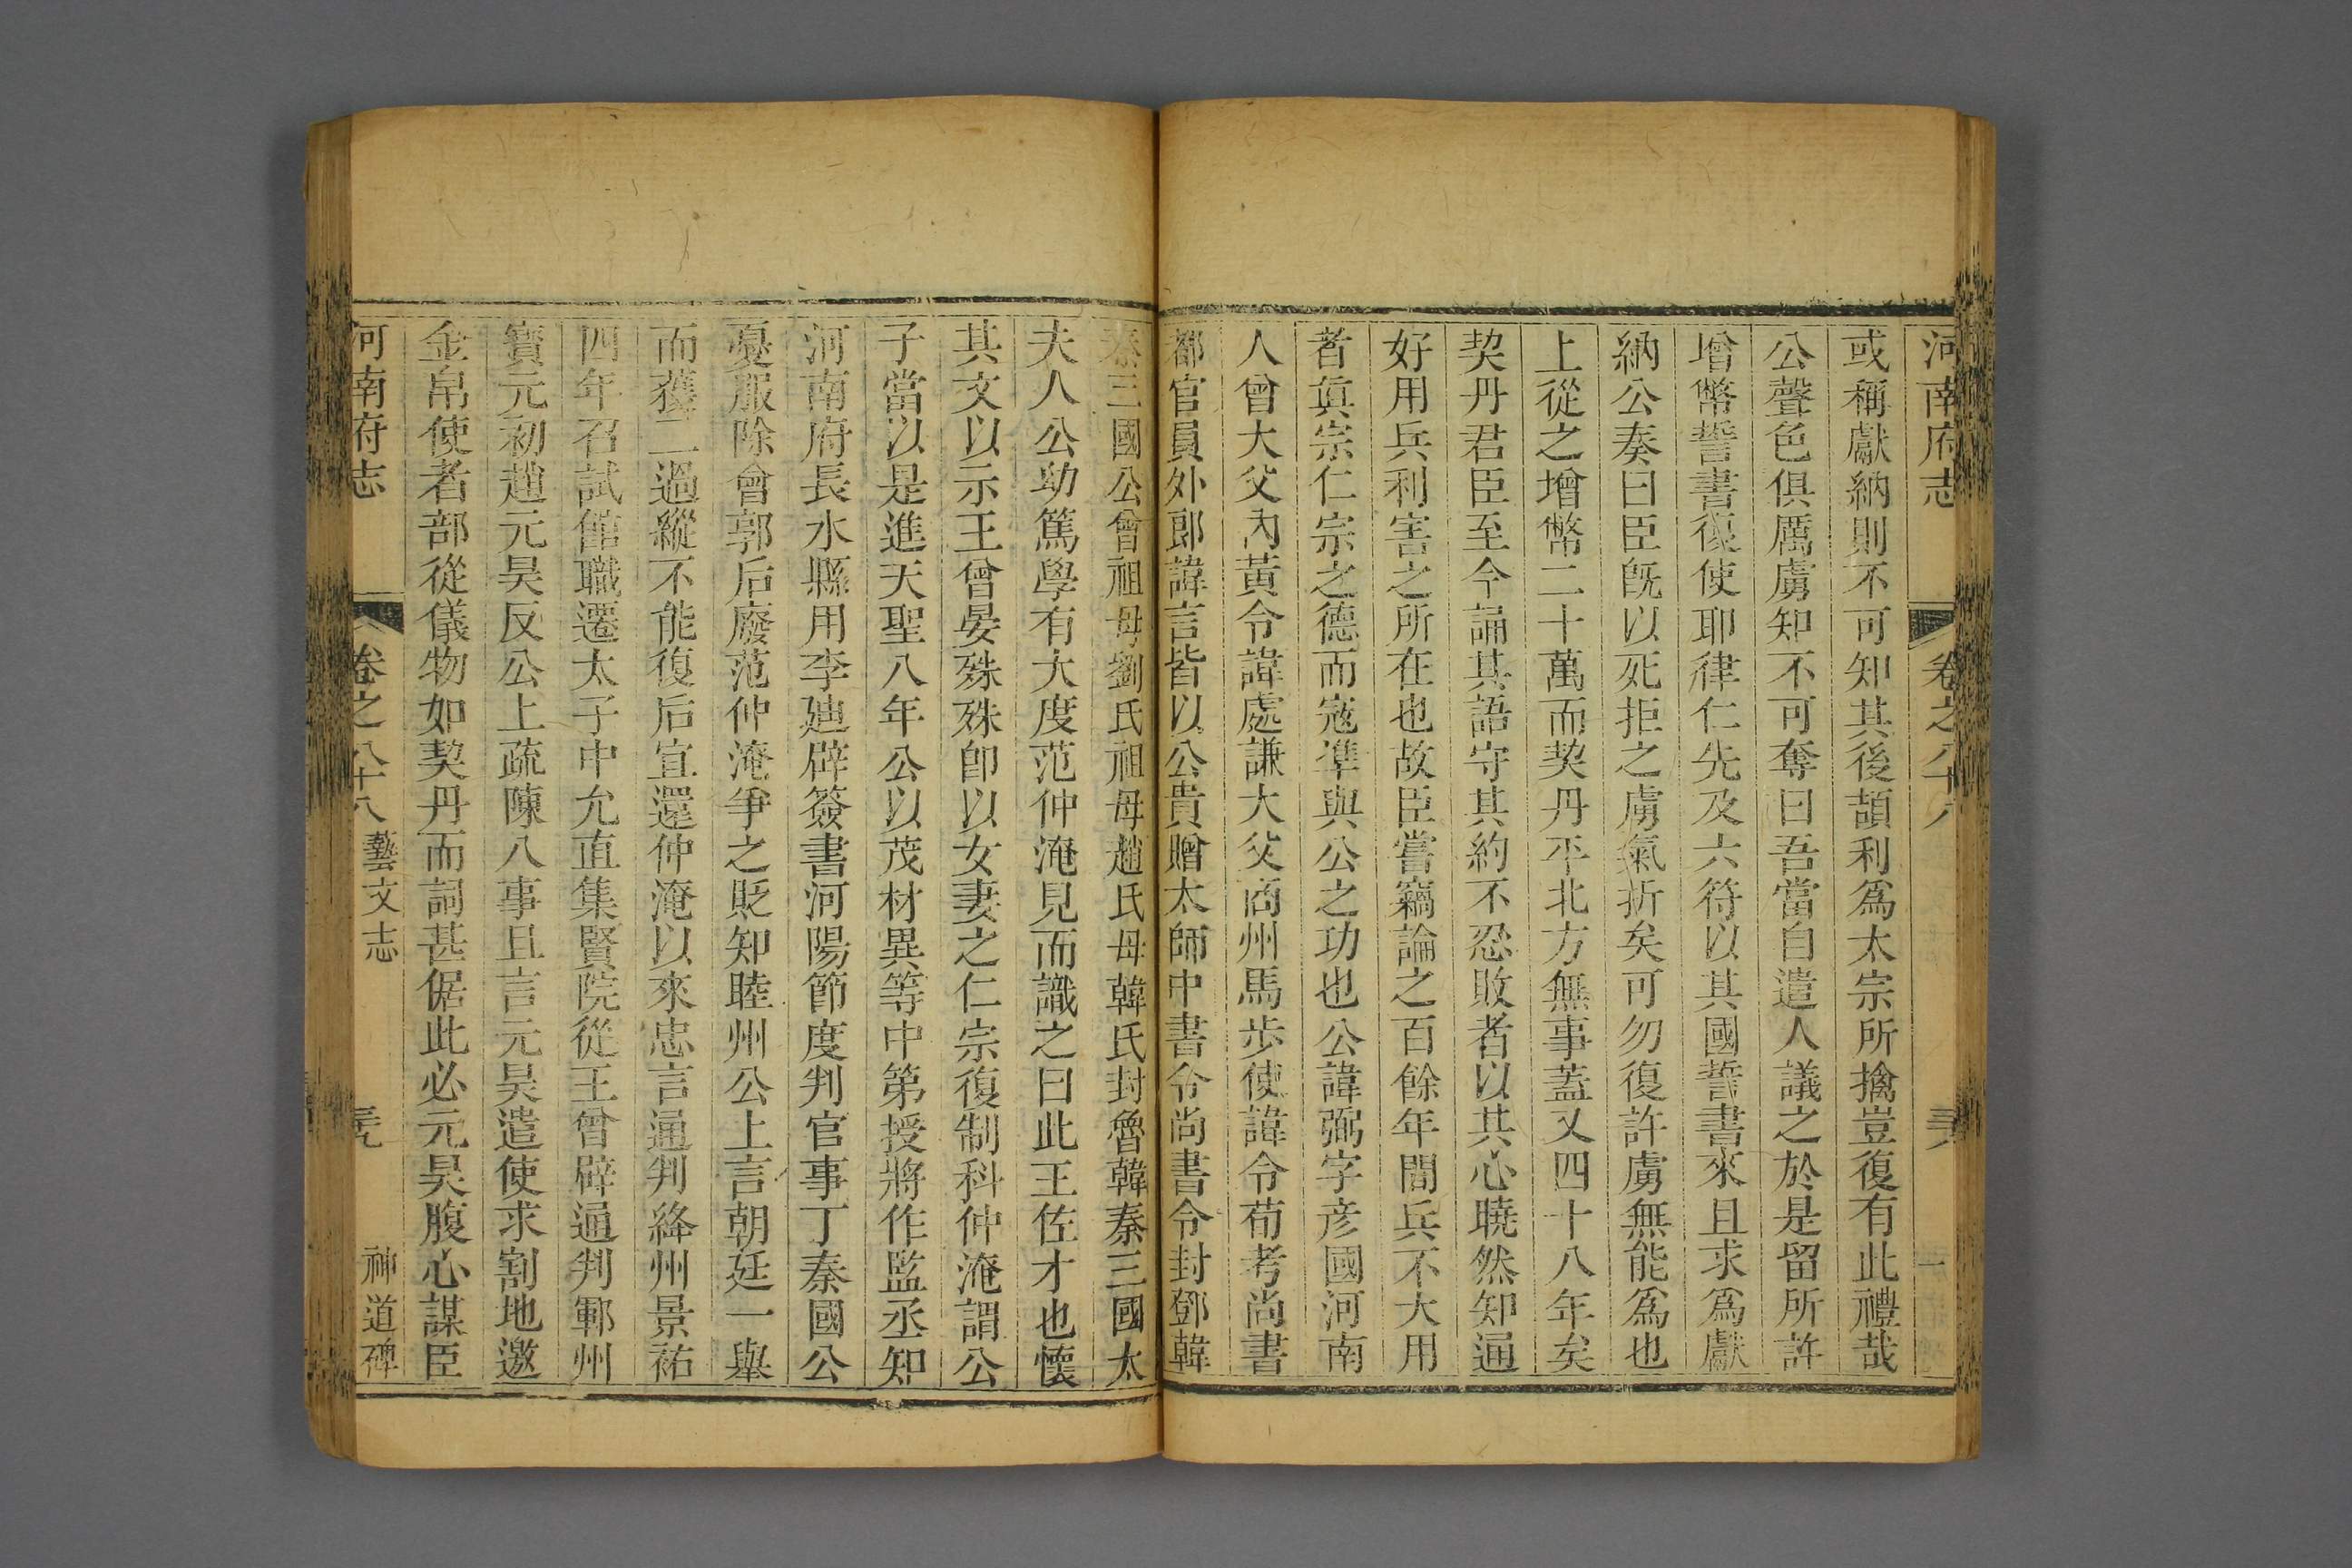 河南府志 卷之八十八
或稱獻納則不可知其後頡利爲太宗所擒豈復有此禮哉
公聲色俱厲虜知不可奪曰吾當自遣人議之於是留所許
增幣誓書復使耶律仁先及六符以其國誓書來且求爲獻
納公奏曰臣旣以死拒之虜氣折矣可勿復許虜無能爲也
上從之增幣二十萬而契丹平北方無事蓋又四十八年矣
契丹君臣至今誦其語守其約不忍敗者以其心曉然知通
好用兵利害之所在也故臣嘗竊論之百餘年間兵不大用
者眞宗仁宗之德而寇準與公之功也公諱弼字彦國河南
人曾大父內黃令諱處謙大父商州馬步使諱令荀考尚書
都官員外郎諱言皆以公貴贈太師中書令尚書令封鄧韓
秦三國公曾祖母劉氏祖母趙氏母韓氏封魯韓秦三國太
夫人公幼篤學有大度范仲淹見而識之曰此王佐才也懷
其文以示王曾晏殊殊卽以女妻之仁宗復制科仲淹謂公
子當以是進天聖八年公以茂材異等中第授將作監丞知
河南府長水縣用李廸辟簽書河陽節度判官事丁秦國公
憂服除會郭后廢范仲淹爭之貶知睦州公上言朝廷一舉
而獲二過縱不能復后宜還仲淹以來忠言通判絳州景祐
四年召試館職遷太子中允直集賢院從王曾辟通判鄆州
寶元初趙元昊反公上疏陳八事且言元昊遣使求割地邀
金帛使者部從儀物如契丹而詞甚倨此必元昊腹心謀臣
河南府志 卷之八十八 藝文志 神道碑